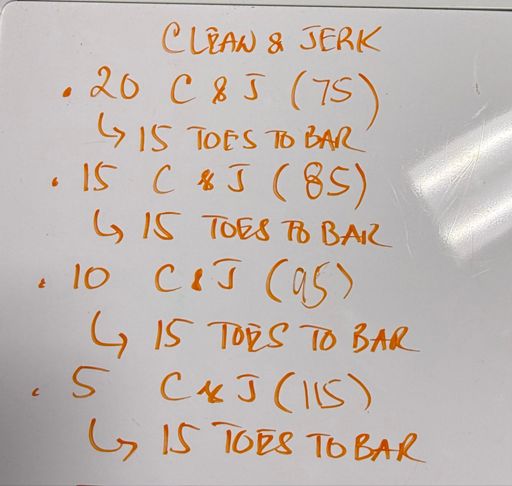 CLEAN & JERK
• 20 C & J (75)
↳ 15 TOES TO BAR
• 15 C & J (85)
↳ 15 TOES TO BAR
• 10 C & J (95)
↳ 15 TOES TO BAR
• 5 C & J (115)
↳ 15 TOES TO BAR